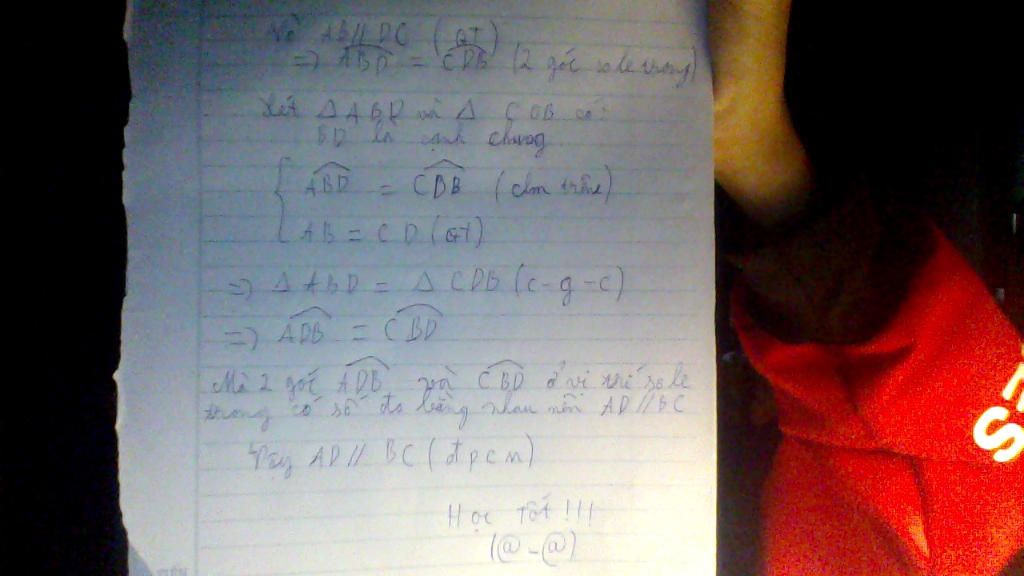 Vì AB // DC (GT)
=> ABD = CDB (2 góc so le trong)
Xét Δ ABD và Δ CDB có:
BD là cạnh chung
ABD = CDB (cm trên)
AB = CD (GT)
=> Δ ABD = Δ CDB (c-g-c)
=> ADB = CBD
Mà 2 góc ADB và CBD ở vị trí so le
trong có số đo bằng nhau nên AD // BC
Vậy AD // BC (đpcm)
Học tốt!!!
(@-@)